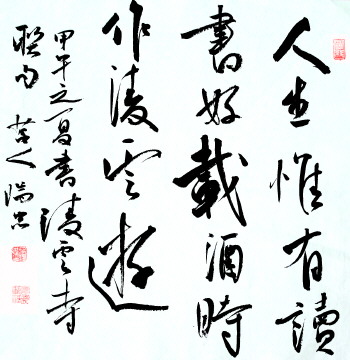 人生惟有讀
書好載酒時
作凌雲遊
甲午之夏書凌雲寺
聯句 苦人 瑞忠